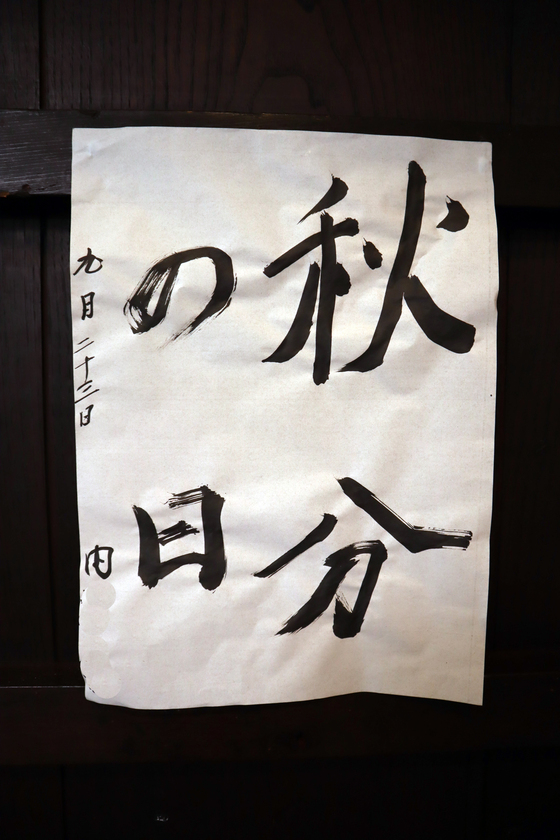 秋分
の日
九月二十三日 内